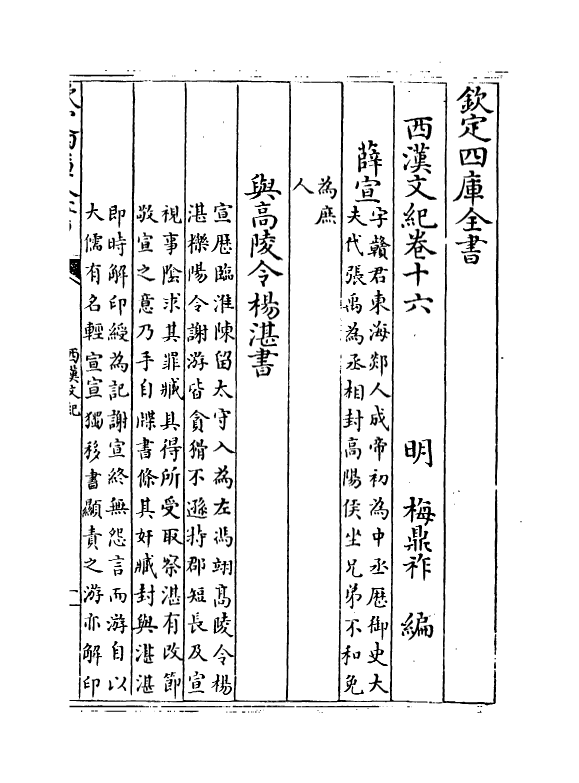 欽定四庫全書
西漢文紀卷十六
明 梅鼎祚 編
薛宣
字贛君東海郯人成帝初為中丞歴御史大
夫代張禹為丞相封高陽侯坐兄弟不和免
為庶
人
與高陵令楊湛書
宣歴臨淮陳留太守入為左馮翊高陵令楊
湛櫟陽令謝游皆貪猾不遜持郡短長及宣
視事陰求其罪臧具得所受取察湛有改節
敬宣之意乃手自牒書條其奸臧封與湛湛
即時解印綬為記謝宣終無怨言而游自以
大儒有名輕宣宣獨移書顯責之游亦解印
西漢文紀
一